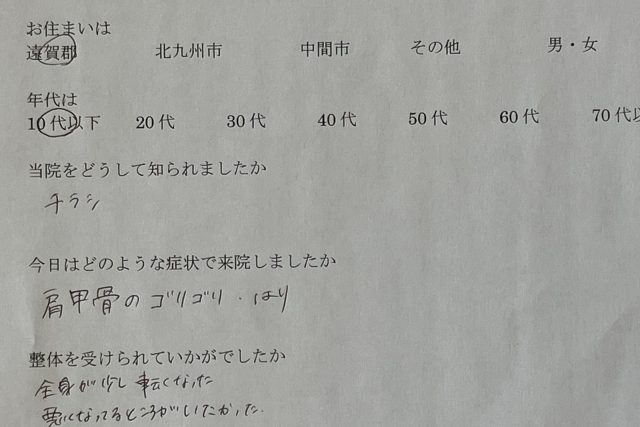 お住まいは
遠賀郡 北九州市 中間市 その他 男・女
年代は
10代以下 20代 30代 40代 50代 60代 70代以
当院をどうして知られましたか
チラシ
今日はどのような症状で来院しましたか
肩甲骨のゴリゴリ・はり
整体を受けられていかがでしたか
全身が少し軽くなった
悪くなってるところがいたかった.